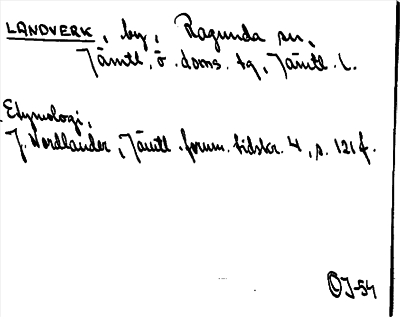 LANDVERK, by, Ragunda sn,
Jämtl. ö. doms. tg, Jämtl. l.
Etymologi,
J. Nordlander, Jämtl. fornm. tidskr. 4, s. 121 f.
OJ-54